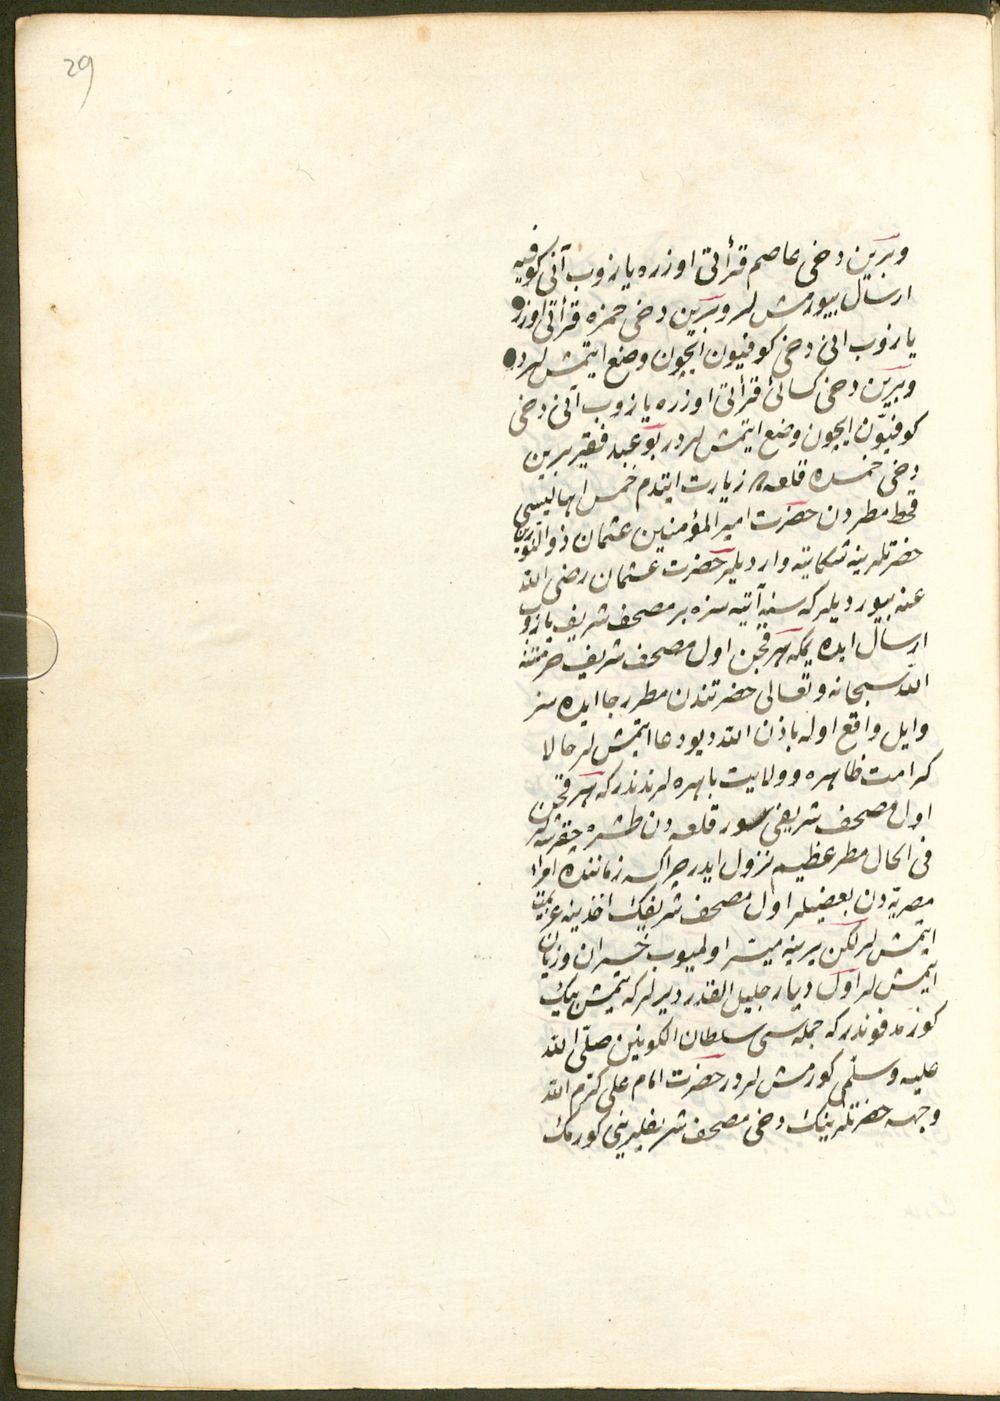 29
وبرین دخی عاصم قرأتی اوزره یازوب آنی کوفیه
ارسال بیورمشلر وبرین دخی حمزه قرأتی اوزره
یازوب انی دخی کوفیون ایچون وضع ایتمشلردر
وبرین دخی کسائی قرأتی اوزره یازوب آنی دخی
کوفیّون ایچون وضع ایتمشلردر بو عبد فقیر برین
دخی خمسده قلعه زیارت ایتدم خمس اهالیسی
قحط مطردن حضرت امیر المؤمنین عثمان ذو النورین
حضرتلرینه شکایته واردیلر حضرت عثمان رضی الله
عنه بیوردیلر که سنۀ آتیه سزه بر مصحف شریف یازوب
ارسال ایده یمکه هر قچن اول مصحف شریف حرمتنه
الله سبحانه وتعالی حضرتندن مطر رجا ایده سز
وابل واقع اوله باذن الله دیو دعا ایتمشلر حالا
کرامت ظاهره وولایت باهره لرندندر که هر قچن
اول مصحف شریفی سور قلعه دن طشره چقرسه لر
فی الحال مطر عظیم نزول ایدر چراکسه زماننده امراء
مصریّه دن بعضیلر اول مصحف شریفک اخذینه عزیمت
ایتمشلر لکن برینه میسّر اولمیوب خسران وزیان
ایتمشلر اول دیار جلیل القدر دیرلر که یتمش بیک
کوزمدفوندر که جمله سی سلطان الکونین صلّی الله
علیه وسلّمی کورمشلردر حضرت امام علی کرّم الله
وجهه حضرتلرینک دخی مصحف شریفلرینی کورمک